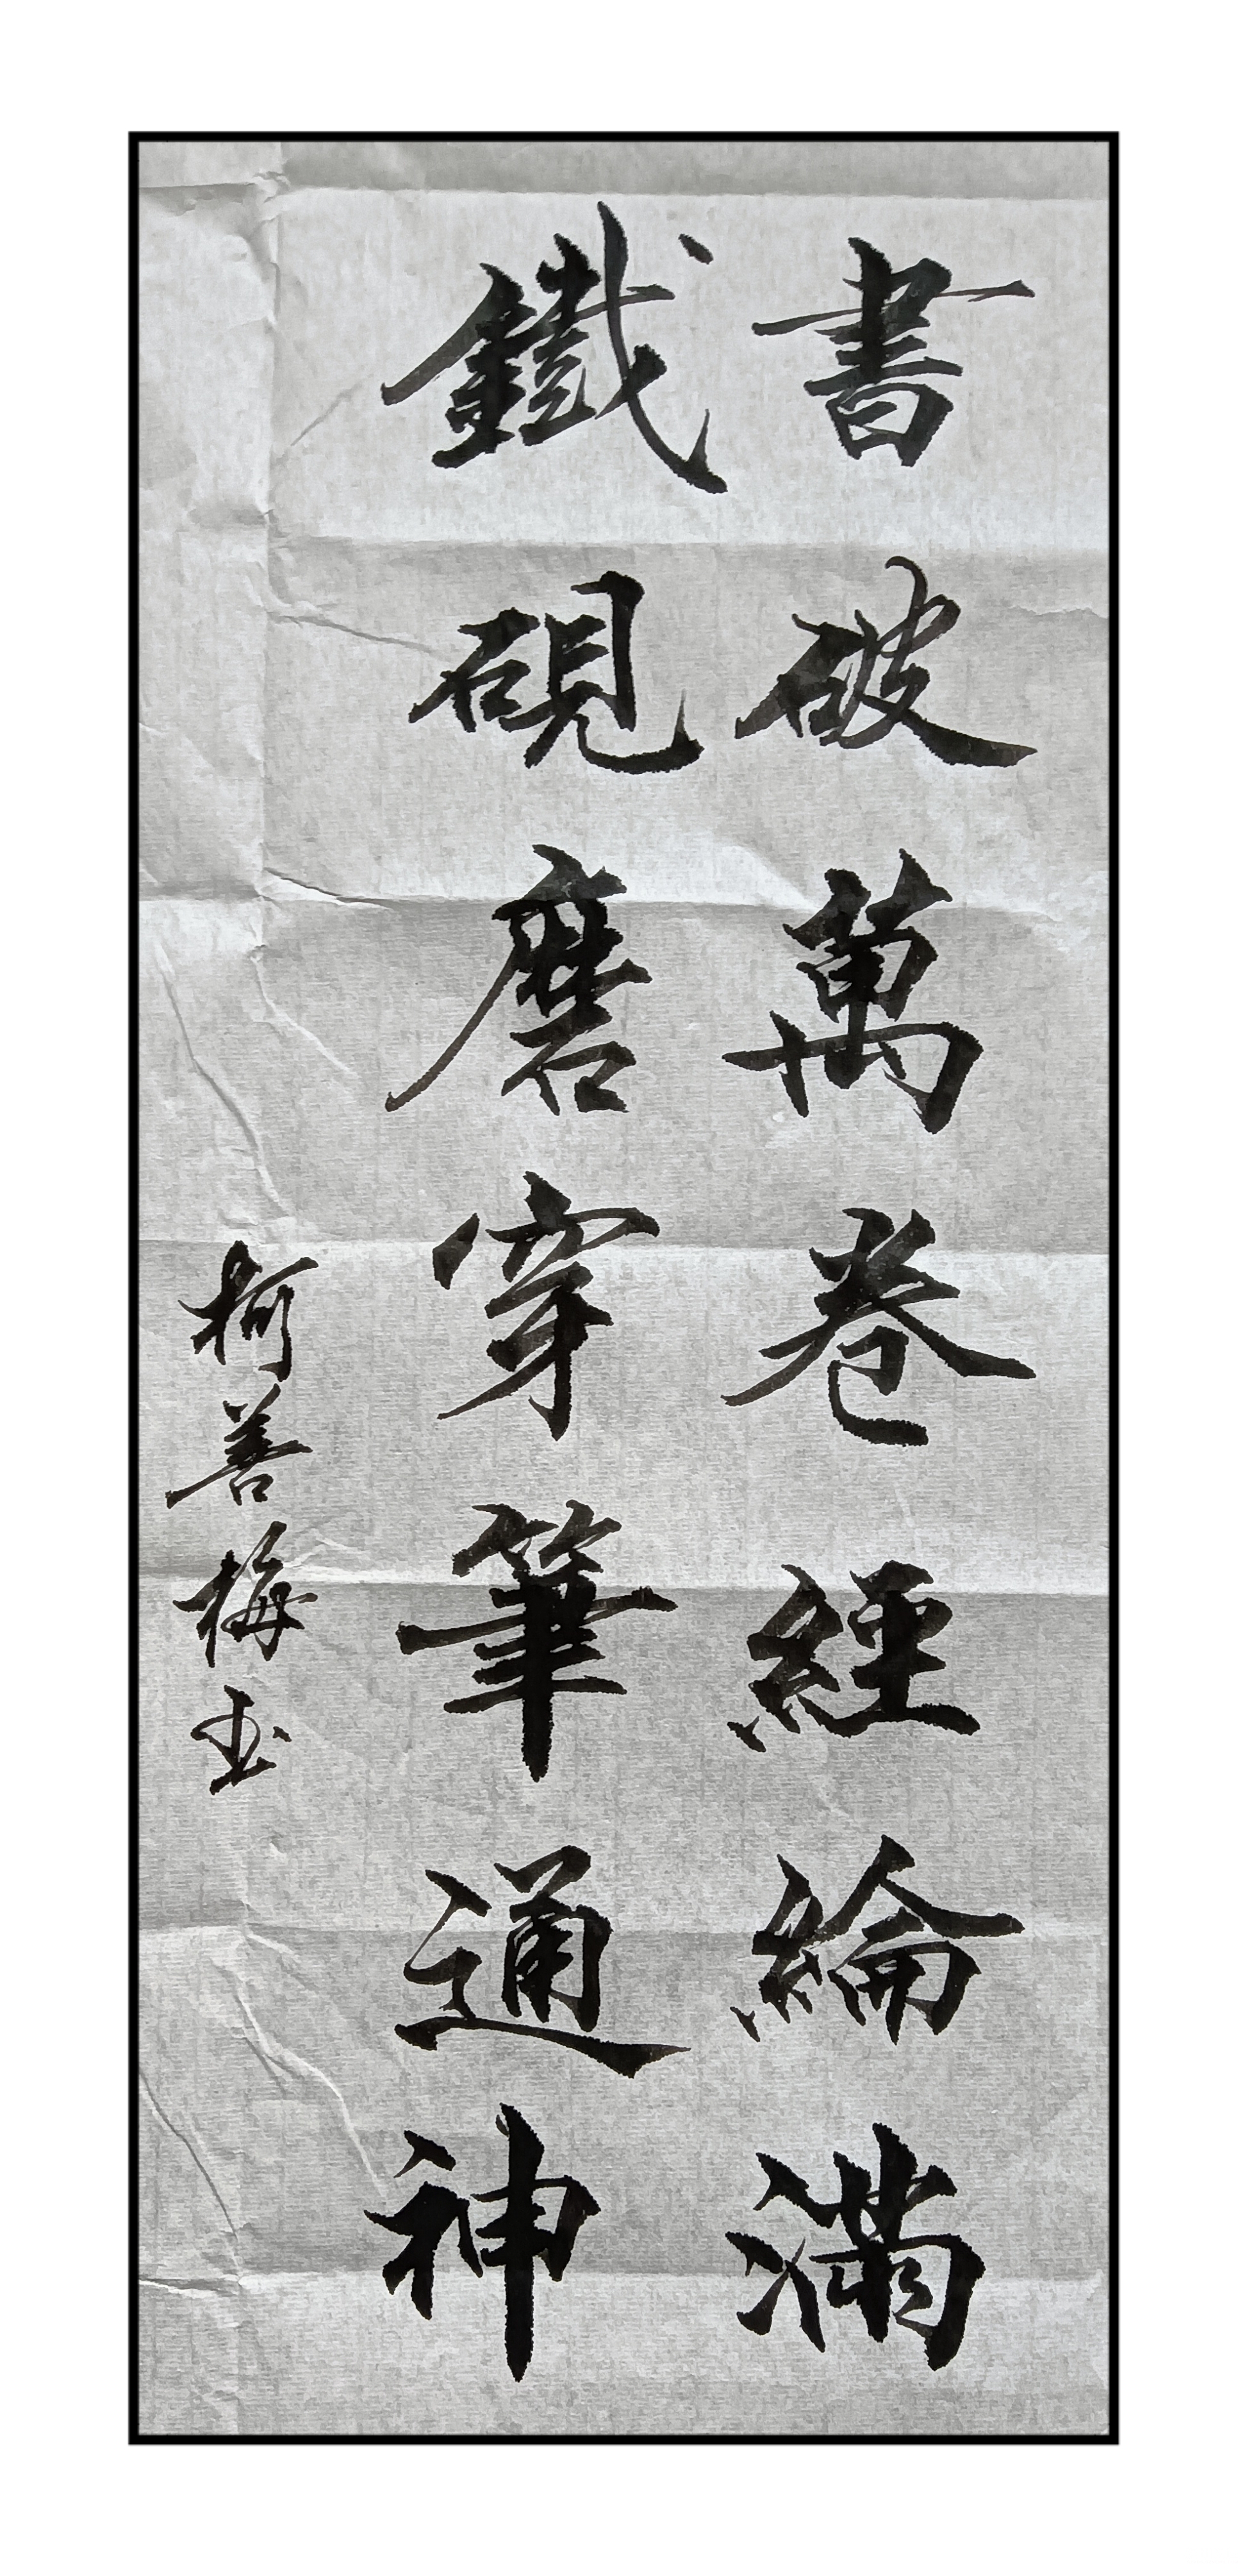 書破萬卷經綸滿
鐵硯磨穿筆通神
柯善梅书